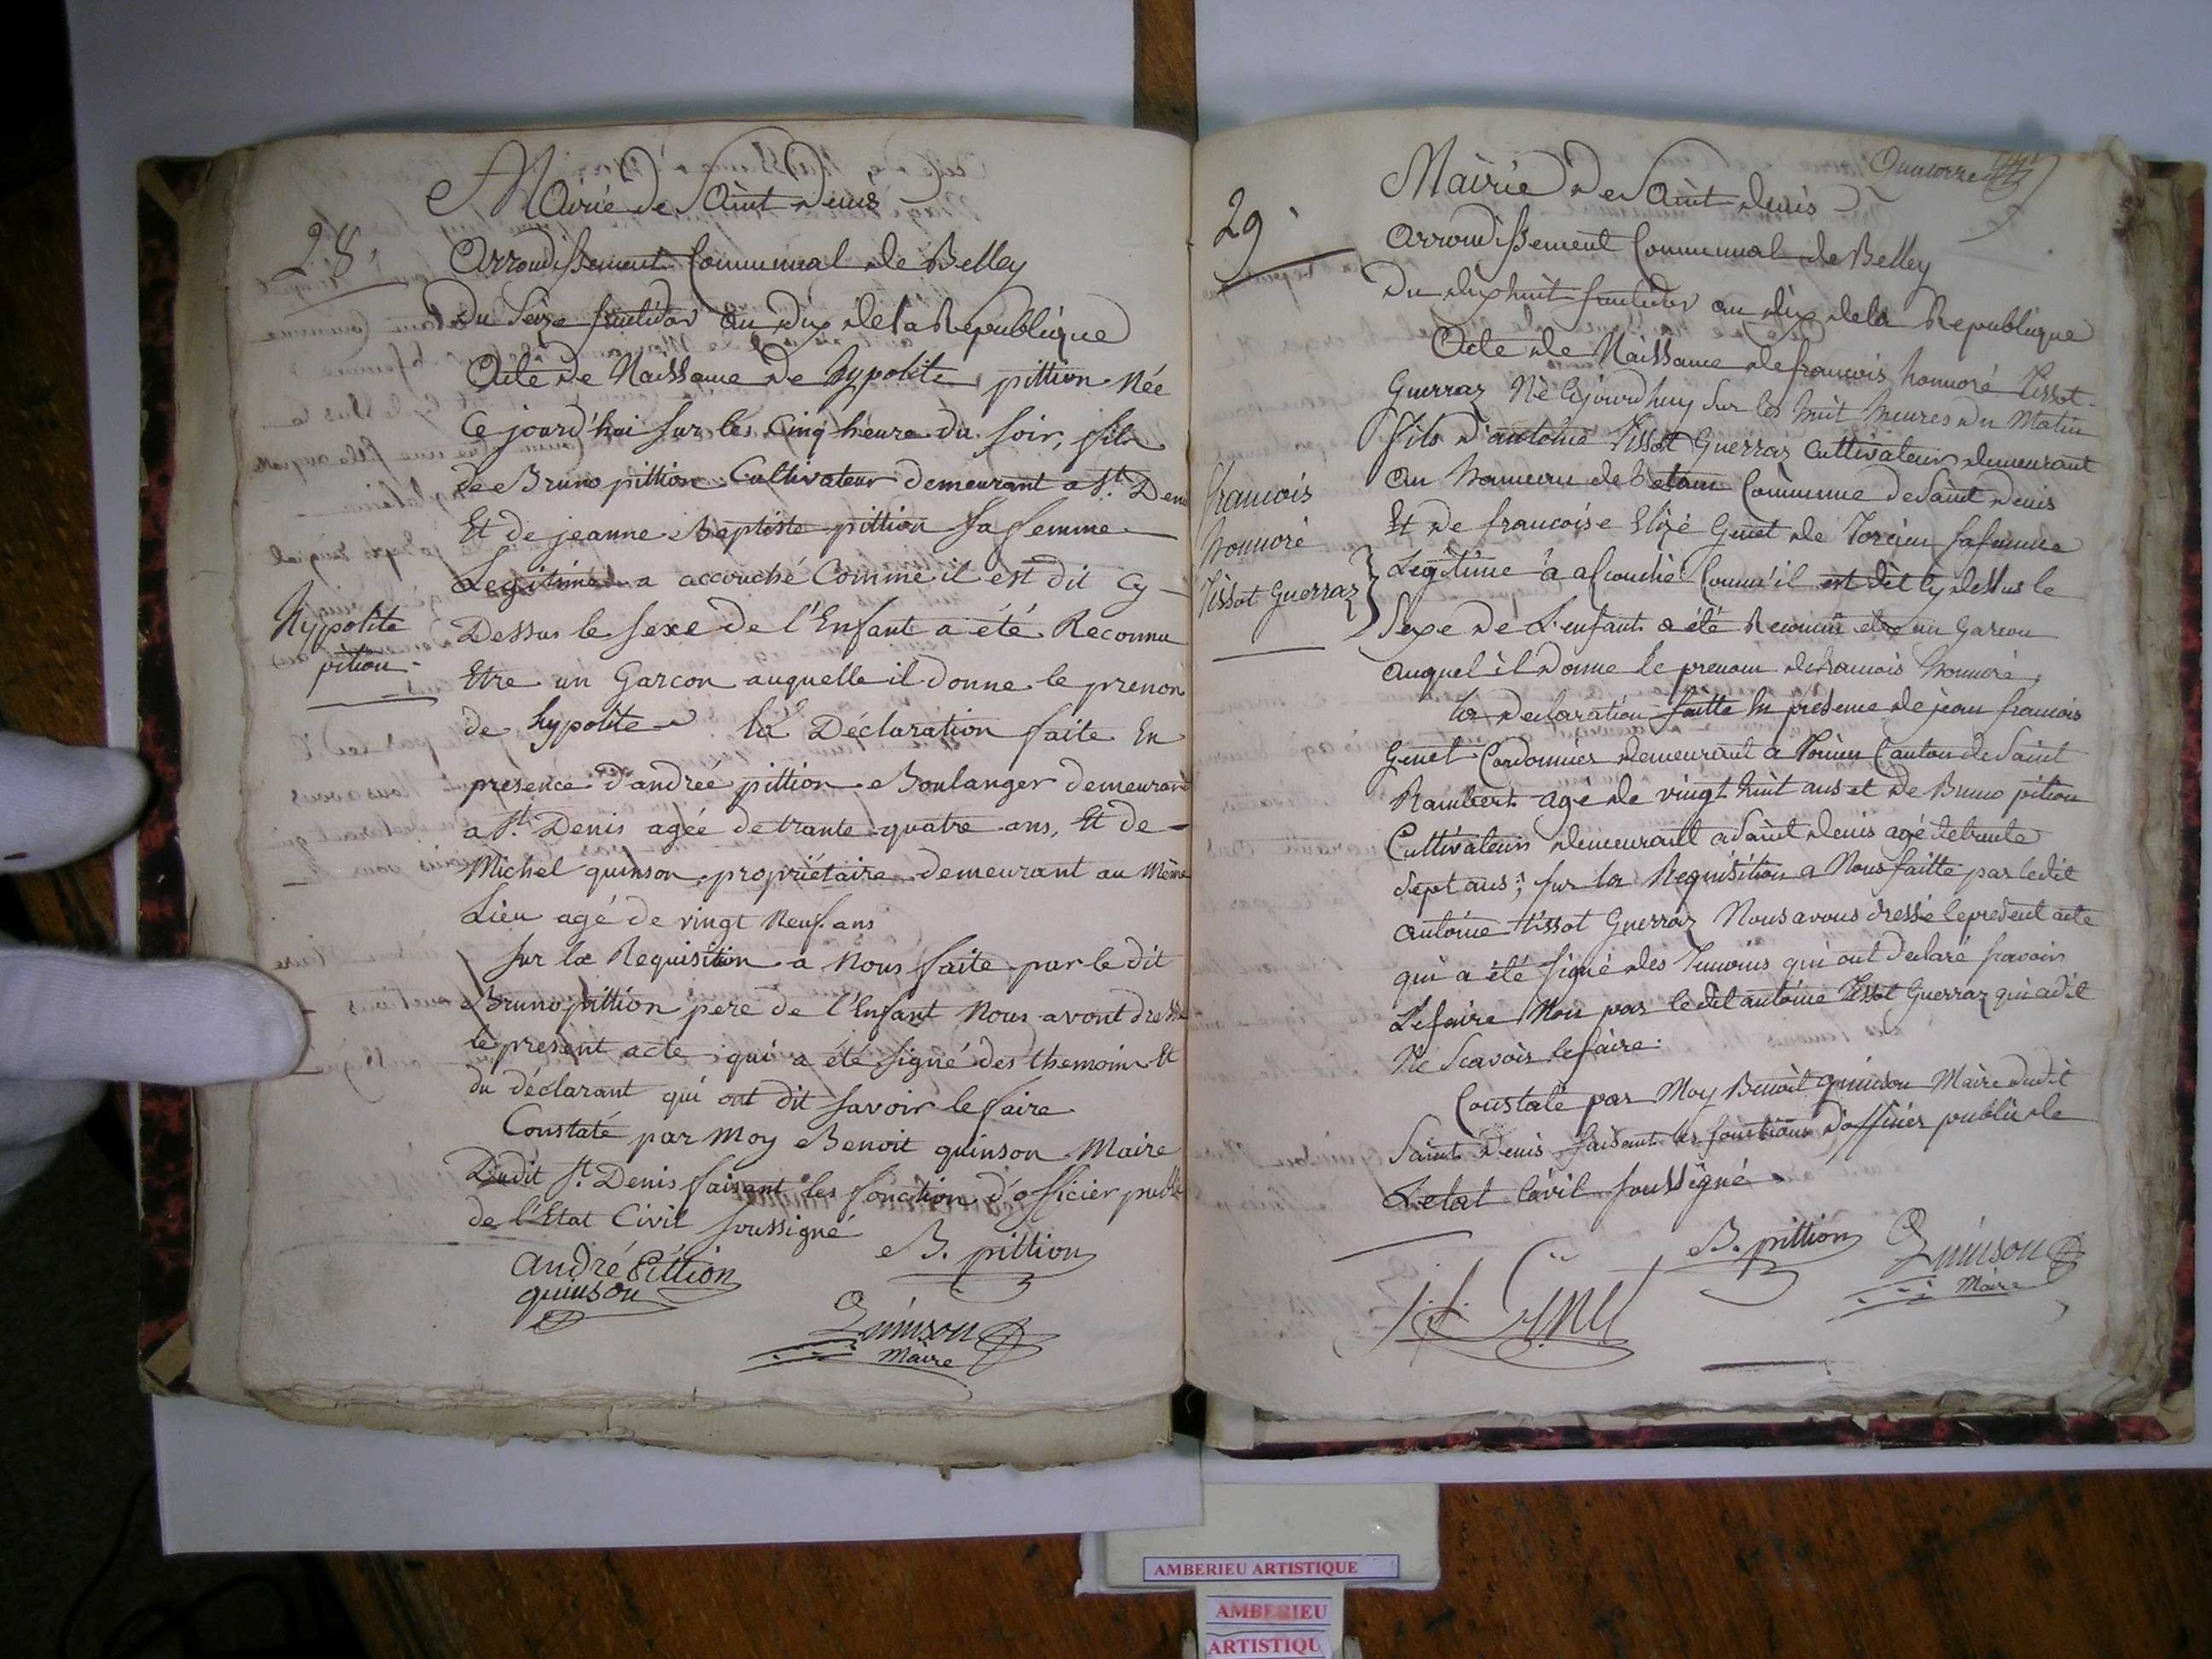 Mairie de Saint denis
28.
Arrondissement Communal de Belley
Du Seize fructidor an dix de la Republique
Acte de Naissance de hypolite pittion Née
Ce jourd'hui sur les Cinq heure du soir, fils
de Bruno pittion Cultivateur demeurant a St. Denis
Et de jeanne Baptiste pittion sa femme
Legitime a accouché Comme il est dit Cy-
Dessus le sexe de l'Enfant a été Reconnu
Hypolite
pition
Etre un Garcon auquelle il donne le prenon
de hypolite la Déclaration faite En
presence d'andrée pittion Boulanger demeurant
a St. Denis agée de trante quatre ans, Et de
Michel quinson propriétaire demeurant au Même
Lieu agé de vingt Neuf ans
Sur la Requisition a Nous faite par le dit
Bruno pittion pere de l'Enfant Nous avont dressé
le present acte qui a été signé des themoins Et
du déclarant qui ont dit savoir le faire
Constaté par Moy Benoit quinson Maire
Dudit St. Denis faisant les fonction d'officier public
de l'Etat Civil soussigné
B. pittion
André Pittion
quinson
Quinson
Maire
Quatorze
Mairie de Saint denis
29.
Arrondissement Communal de Belley
Du dixhuit fructidor an dix de la Republique
Acte de Naissance de francois honnoré Tissot
Guerraz Né Cejourdhuy sur les huit heures du Matin
fils d'antoine Tissot Guerraz Cultivateur demeurant
au hameau de Commune de Saint denis
francois
honnoré
Tissot Guerraz
Et de francoise Genet de Torcieu sa femme
Legitime a acouché Comm'il est dit Cy dessus le
Sexe de L'enfant a été Reconnu etre un Garcon
auquel il donne le prenom de francois honnoré,
la declaration faitte En présence de jean francois
Genet Cordonnier demeurant a Torcieu Canton de Saint
Rambert agé de vingt huit ans et de Bruno pition
Cultivateur demeurant a Saint denis agé de trante
sept ans; sur la Requisition a Nous faitte par ledit
antoine tissot Guerraz Nous avons dressé le présent acte
qui a été signé des temoins qui ont declaré scavoir
Le faire Non par ledit antoine Tissot Guerraz qui a dit
Ne Scavoir le faire.
Constaté par Moy Benoit quinson Maire dudit
Saint denis faisant les fonctions d'officier public de
L'etat Civil soussigné
B. pittion
Quinson
Maire
j. f. Genet
AMBERIEU ARTISTIQUE
AMBERIEU
ARTISTIQU